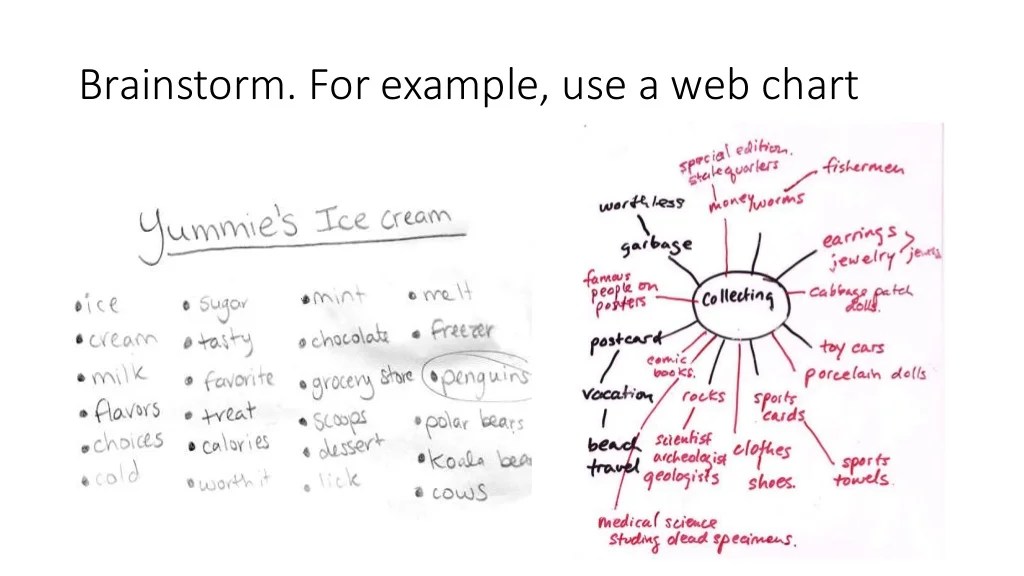 Brainstorm. For example, use a web chart
Yummie's Ice cream
• ice
• cream
• milk
• flavors
• choices
• cold
• sugar
• tasty
• favorite
• treat
• calories
• worth it
• mint
• chocolate
• grocery store
• scoops
• dessert
• lick
• melt
• freezer
• penguins
• polar bears
• Koala bea
• cows
special edition.
state quarters
money
worms
fishermen
worthless
garbage
earrings >
jewelry jewels
famous
people on
posters
collecting
cabbage patch
dolls.
postcard
comic
books.
toy cars
porcelain dolls
vacation
rocks
sports
cards
beach
travel
scientist
archeologist
geologists
clothes
shoes.
sports
towels.
medical science
studing dead specimens.